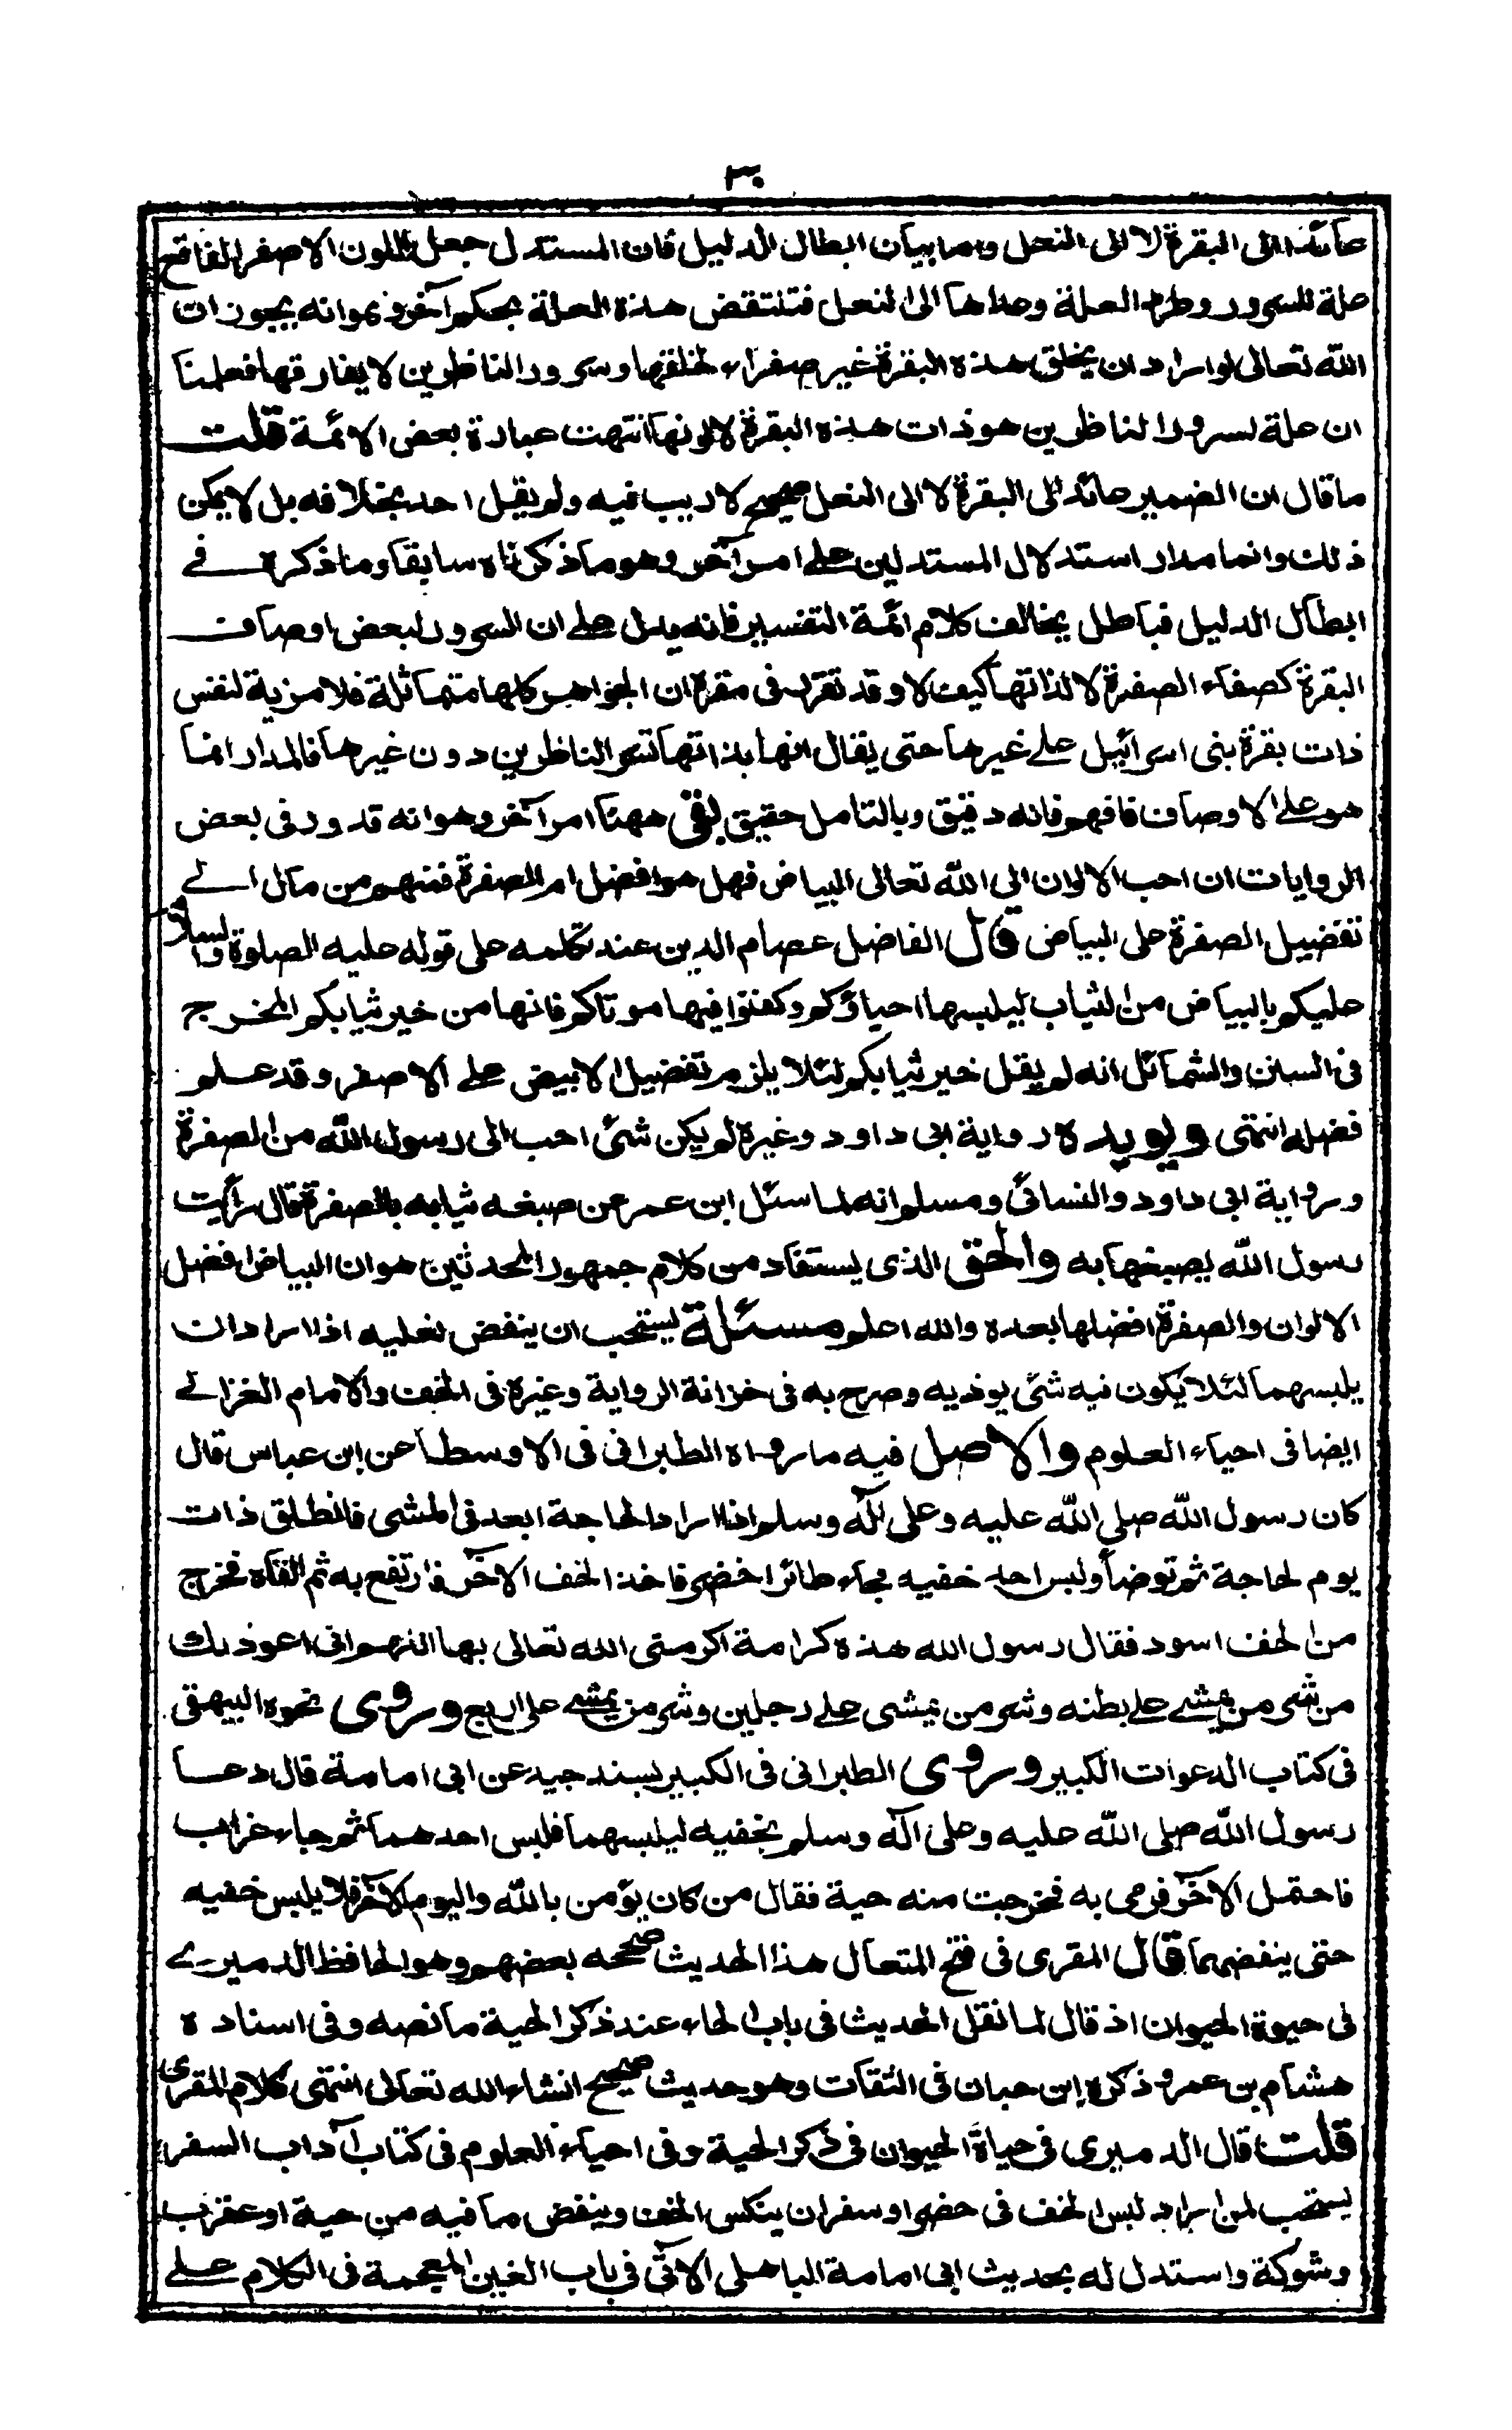 ٣٠
عائد الى البقرة لا الى النعل واما بيان ابطال الدليل فان المستدل جعل اللون الاصفر الفاقع
علة للسرور وطرد العلة وعداها الى النعل فتنتقض هذه العلة بحكم آخر وهو انه يجوز ان
الله تعالى لو اراد ان يخلق هذه البقرة غير صفراء لخلقها وسرور الناظرين لا يفارقها فعلمنا
ان علة لسرور الناظرين هو ذات هذه البقرة لا لونها انتهت عبارة بعض الائمة قلت
ما قال ان الضمير عائد الى البقرة لا الى النعل صحيح لا ريب فيه ولم يقل احد بخلافه بل لا يمكن
ذلك وانما مدار استدلال المستدلين على امر آخر وهو ما ذكرناه سابقا وما ذكره فى
ابطال الدليل فباطل يخالف كلام ائمة التفسير فانه يدل على ان السرور لبعض اوصاف
البقرة كصفاء الصفرة لا لذاتها كيف لا وقد تقرر فى مقره ان الجواهر كلها متماثلة فلا مزية لنفس
ذات بقرة بنى اسرائيل على غيرها حتى يقال انها بذاتها تسر الناظرين دون غيرها فالمدار انما
هو على الاوصاف فافهم فانه دقيق وبالتامل حقيق بقى ههنا امر آخر وهو انه قد ورد فى بعض
الروايات ان احب الالوان الى الله تعالى البياض فهل هو افضل ام الصفرة فمنهم من مال الى
تفضيل الصفرة على البياض قال الفاضل عصام الدين عند تكلمه على قوله عليه الصلوة والسلام
عليكم بالبياض من الثياب ليلبسها احياؤكم وكفنوا فيها موتاكم فانها من خير ثيابكم المخرج
فى السنن والشمائل انه لم يقل خير ثيابكم لئلا يلزم تفضيل الابيض على الاصفر وقد علم
فضله انتهى ويويده رواية ابى داود وغيره لم يكن شئ احب الى رسول الله من الصفرة
ورواية ابى داود والنسائى ومسلم انه لما سئل ابن عمر عن صبغه ثيابه بالصفرة قال رأيت
رسول الله يصبغها به والحق الذى يستفاد من كلام جمهور المحدثين هو ان البياض افضل
الالوان والصفرة افضلها بعده والله اعلم مسئلة يستحب ان ينفض نعليه اذا اراد ان
يلبسهما لئلا يكون فيه شئ يوذيه وصرح به فى خزانة الرواية وغيره فى الخف والامام الغزالى
ايضا فى احياء العلوم والاصل فيه ما رواه الطبرانى فى الاوسط عن ابن عباس قال
كان رسول الله صلى الله عليه وعلى آله وسلم اذا اراد الحاجة ابعد فى المشى فانطلق ذات
يوم لحاجة ثم توضأ ولبس احد خفيه فجاء طائر اخضر فاخذ الخف الآخر فارتفع به ثم القاه فخرج
من الخف اسود فقال رسول الله هذه كرامة اكرمنى الله تعالى بها اللهم انى اعوذ بك
من شر من يمشى على بطنه وشر من يمشى على رجلين وشر من يمشى على اربع وروى نحوه البيهقى
فى كتاب الدعوات الكبير وروى الطبرانى فى الكبير بسند جيد عن ابى امامة قال دعا
رسول الله صلى الله عليه وعلى آله وسلم بخفيه ليلبسهما فلبس احدهما ثم جاء غراب
فاحتمل الآخر فرمى به فخرجت منه حية فقال من كان يؤمن بالله واليوم الآخر فلا يلبس خفيه
حتى ينفضهما قال المقرى فى فتح المتعال هذا الحديث صححه بعضهم وهو الحافظ الدميرى
فى حيوة الحيوان اذ قال لما نقل الحديث فى باب الحاء عند ذكر الحية ما نصه وفى اسناده
هشام بن عمرو ذكره ابن حبان فى الثقات وهو حديث صحيح انشاء الله تعالى انتهى كلام المقرى
قلت قال الدميرى فى حياة الحيوان فى ذكر الحية وفى احياء العلوم فى كتاب آداب السفر
يستحب لمن اراد لبس الخف فى حضر او سفر ان ينكس الخف وينفض ما فيه من حية او عقرب
وشوكة واستدل له بحديث ابى امامة الباهلى الآتى فى باب الغين المعجمة فى الكلام على